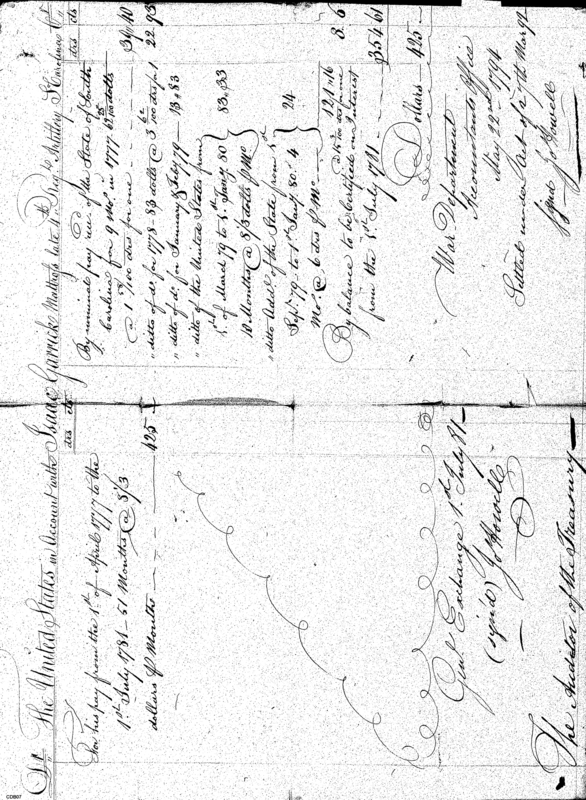 Dr. The United States in Account with Isaac Garrick Matross late 4th Regt. Artillery S Carolina Cr.
dls cts
For his pay from the 1st of April 1777 to the
1st July 1781 – 51 Months @ 8 1/3
dollars p Month 425
dls cts
By nominal pay recd. of the State of South
Carolina for 9 Mos. in 1777
@ 1 /100 dls for one
" ditto of do. for 1778 83 dolls @ 3 /100 dls for 1 22.93
" ditto of do. for January & Feby 1779 13.83
" ditto of the United States from
1st. of March 79 to 1st. Jany 80
10 Months @ 8 1/3 dolls p Mo 83.33
" ditto Addl. of the State from 1st
Sepr. 79 to 1st Jany 80. 4
Mo. @ 6 dls p Mo 24
121.16
for one 3.6
By balance to be Certified on Interest
from the 1st July 1781 354 61
Dollars 425
Genl. Exchange 1st July 81
(sign'd) Jo Howell
War Department
Accountants Office
May 22nd 1794
Settled under Act of 27th Mar 92
Signd Jo Howell
The Auditor of the Treasury
CDB07